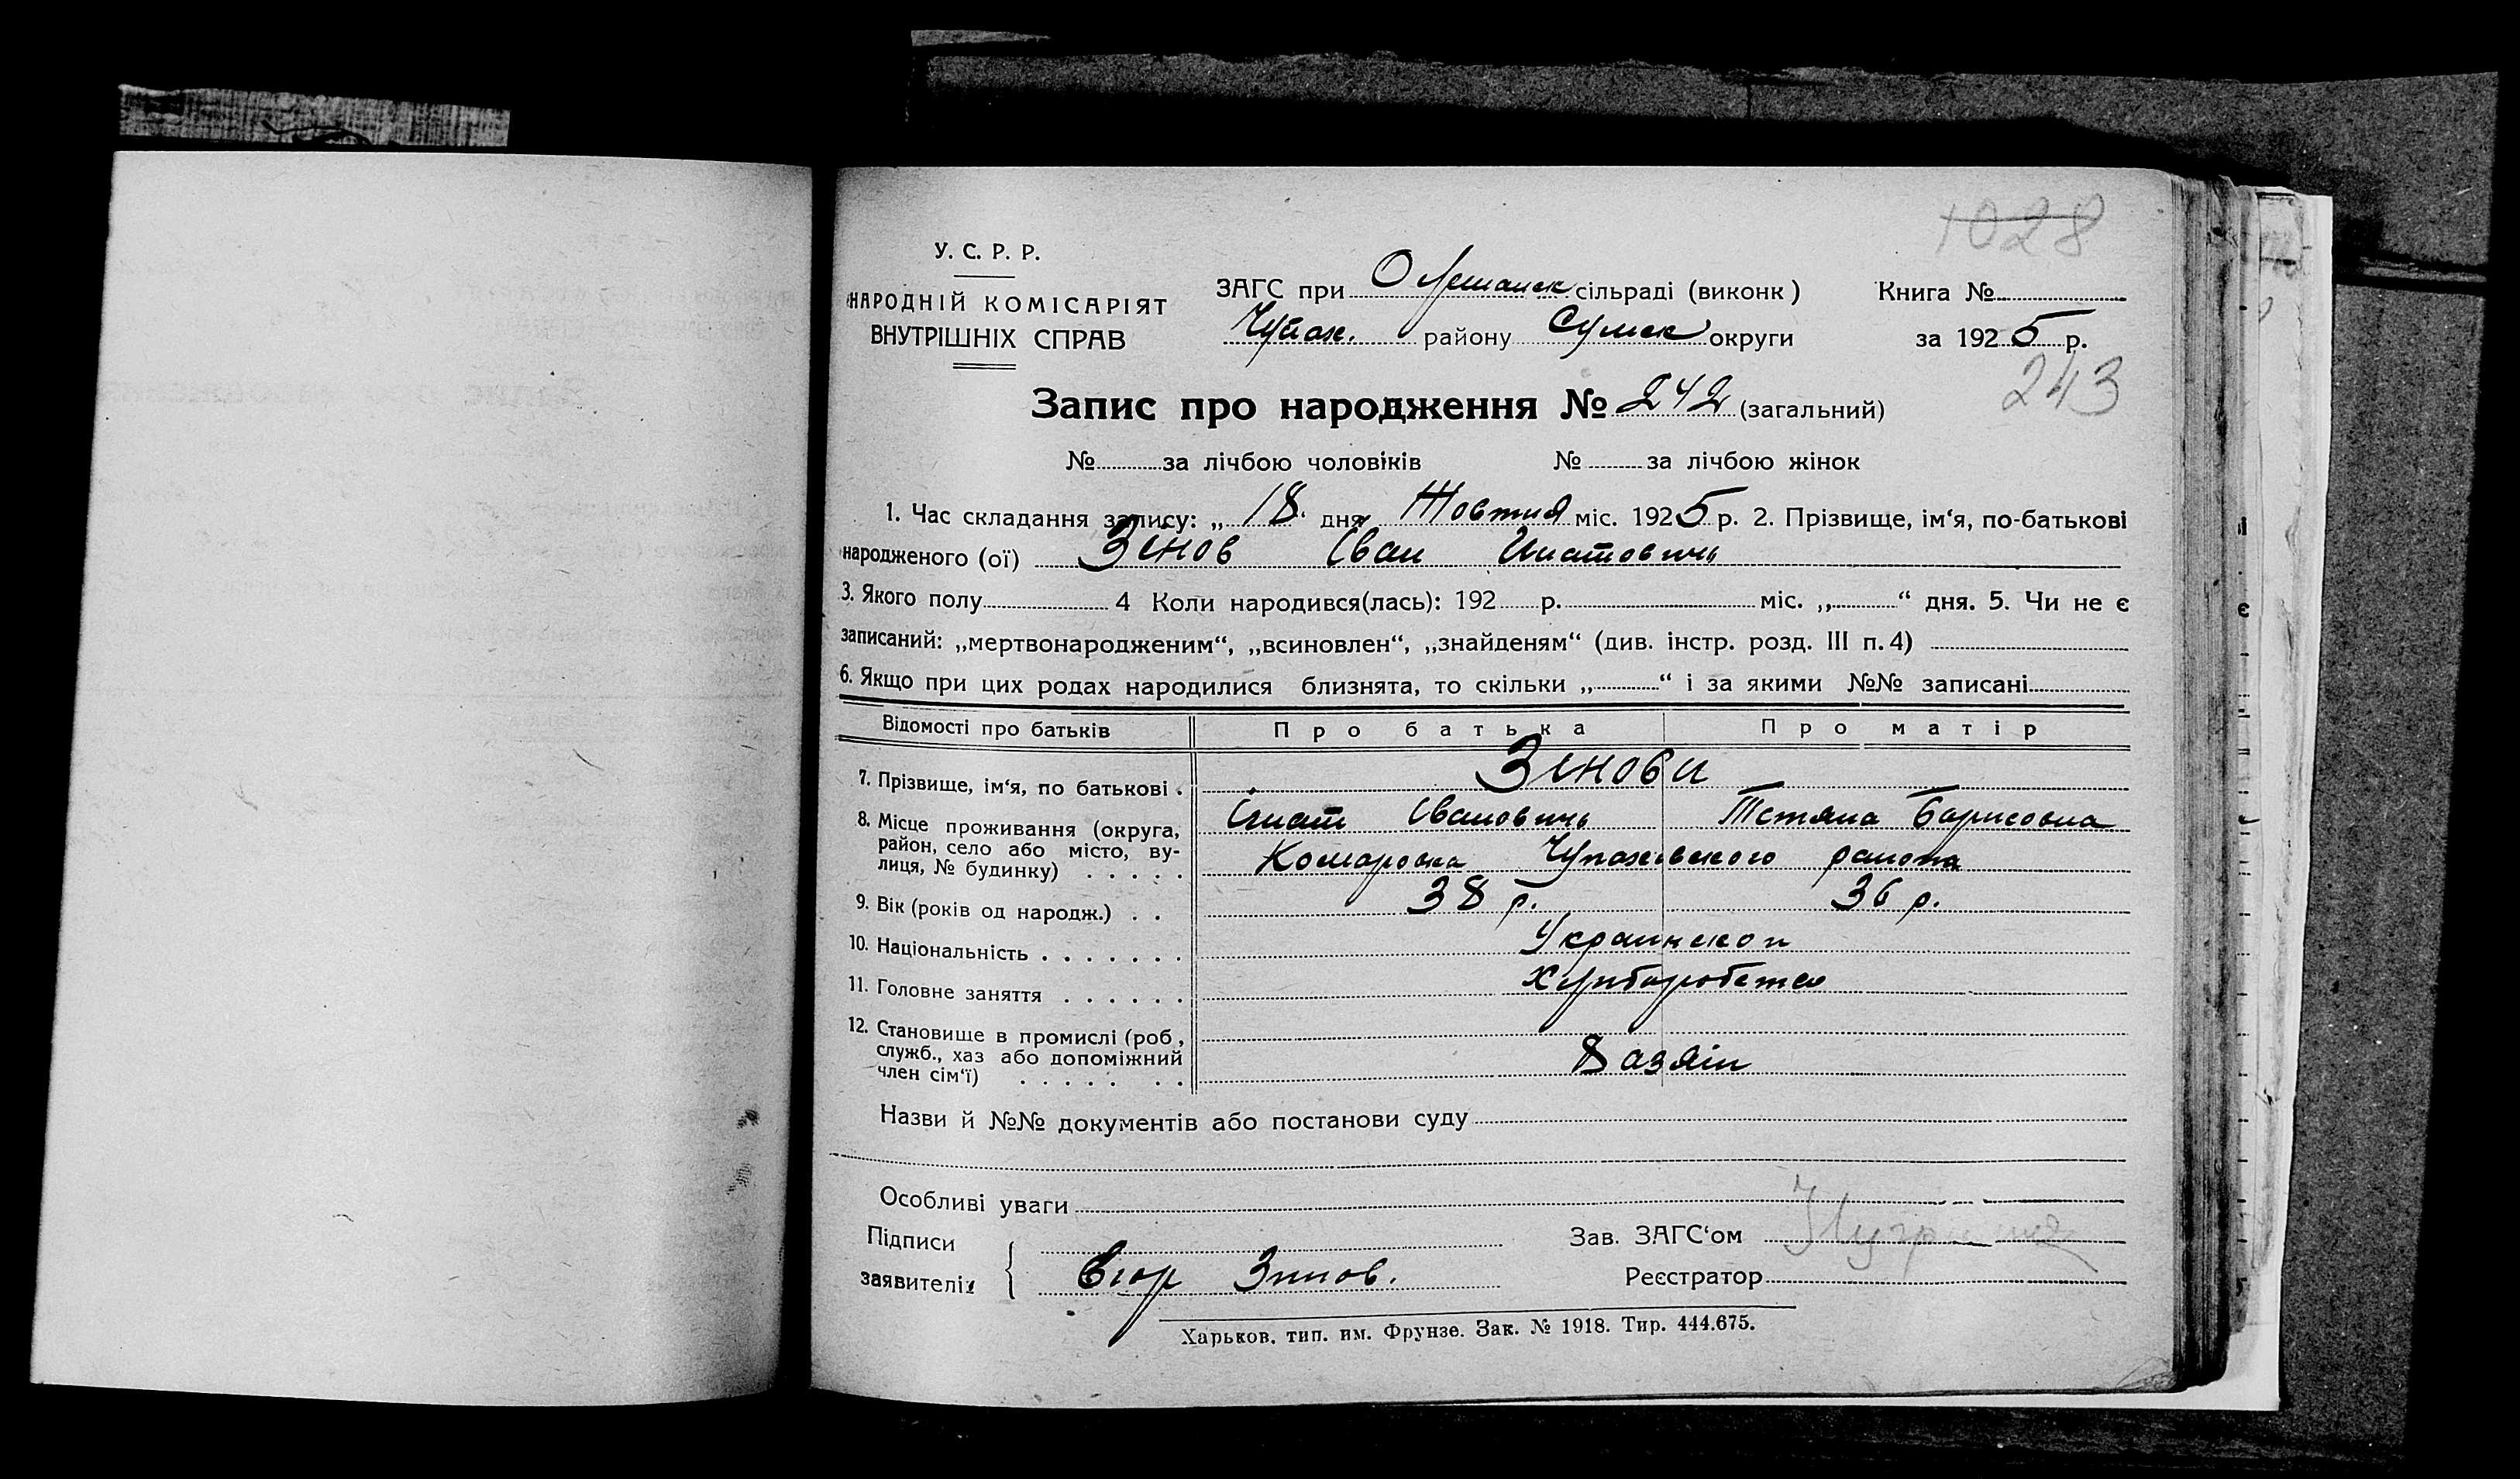 1028
У. С. Р. Р.
НАРОДНІЙ КОМІСАРІЯТ
ВНУТРІШНІХ СПРАВ
ЗАГС при сільраді (виконк)
Чупах. району Сумск округи
Книга №
за 1925 р.
243
Запис про народження № 242 (загальний)
№ за лічбою чоловіків № за лічбою жінок
1. Час складання запису: „ 18 “ дня Жовтня міс. 1925 р. 2. Прізвище, ім‘я, по-батькові
народженого (ої) Зінов Іван Игнатовичь
3. Якого полу 4 Коли народився(лась): 192 р. міс. „ “ дня. 5. Чи не є
записаний: „мертвонародженим“, „всиновлен“, „знайденям“ (див. інстр. розд. III п. 4)
6. Якщо при цих родах народилися близнята, то скільки „ “ і за якими №№ записані
Відомості про батьків Про батька Про матір
7. Прізвище, ім‘я, по батькові . Зінови
Ігнат Івановичь Тетяна Борисовна
8. Місце проживання (округа,
район, село або місто, ву-
лиця, № будинку) . . . . . Комаровка Чупахівского района
9. Вік (років од народж.) . . 38 р. 36 р.
10. Національність . . . . . . . Украинскоп
11. Головне заняття . . . . . .
12. Становище в промислі (роб,
служб., хаз або допоміжний
член сім‘ї) . . . . . . . Хазяін
Назви й №№ документів або постанови суду
Особливі уваги
Підписи
заявителів { Егор Зинов.
Зав. ЗАГС‘ом
Реєстратор
Харьков. тип. им. Фрунзе. Зак. № 1918. Тир. 444.675.